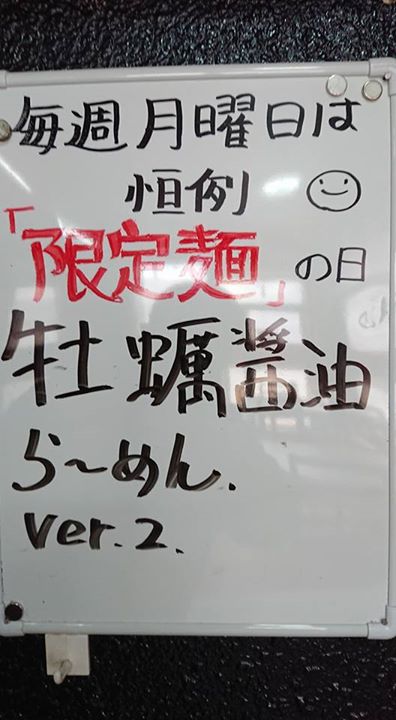 毎週月曜日は
恒例
「限定麺」の日
牡蠣醤油
らーめん.
ver.2.